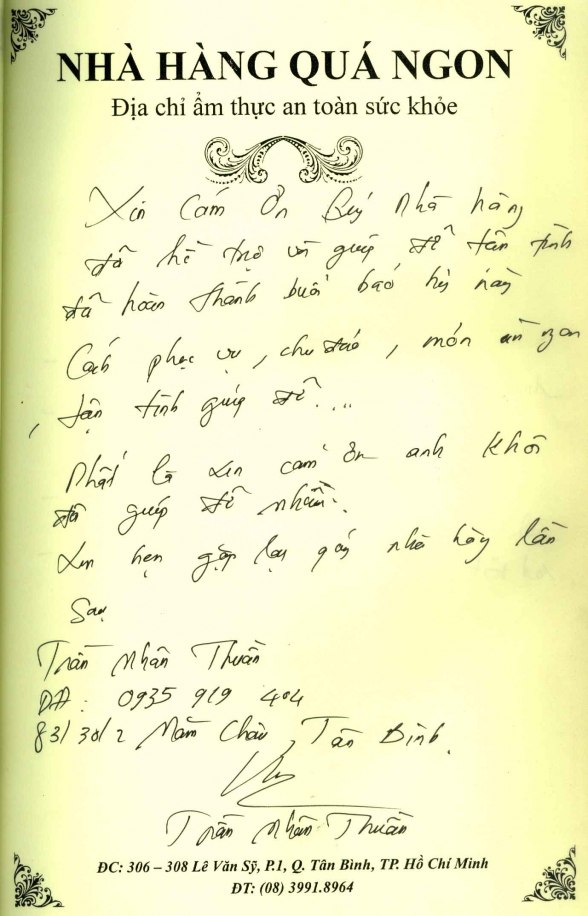 NHÀ HÀNG QUÁ NGON
Địa chỉ ẩm thực an toàn sức khỏe
Xin Cám Ơn Quý Nhà hàng
đã hỗ trợ và giúp đỡ tận tình
đã hoàn thành buổi báo hỷ này
Cách phục vụ, chu đáo, món ăn ngon
, tận tình giúp đỡ...
Nhất là xin cám ơn anh Khôi
đã giúp đỡ nhiều.
Xin hẹn gặp lại quý nhà hàng lần
Sau
Trần Nhân Thuần
DĐ: 0935 919 404
83/38/2 Châu, Tân Bình.
Trần Nhân Thuần
ĐC: 306 – 308 Lê Văn Sỹ, P.1, Q. Tân Bình, TP. Hồ Chí Minh
ĐT: (08) 3991.8964